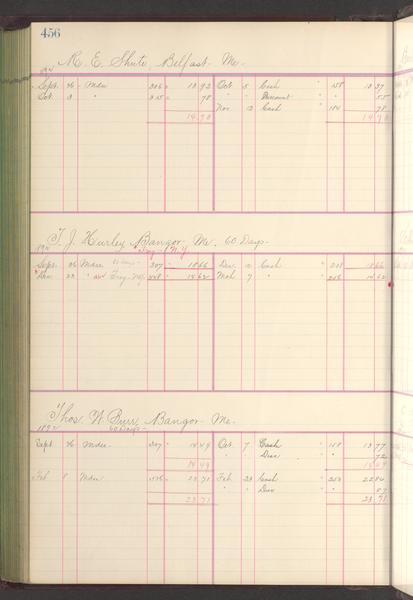 456
R. E. Shute, Belfast Me.
Sept. 26 Mdse 306 13 92 Oct 5 Cash 158 13 37
Oct. 3 " 315 78 " " Discount " 55
Nov 12 Cash 184 78
14 70 14 70
T. J. Hurley Bangor Me. 60 Days
Troy N.Y.
Sept. 26 Mdse 307 18 66 Dec. Cash 208 18 66
23 " 14 62 Mch 7 " 14 62
Thos. W. Burr, Bangor Me.
60 Days
Sept 26 Mdse 307 14 49 Oct. 7 Cash 158 13 77
" " Disc " 72
14 49 14 49
Feb 8 Mdse 23 71 Feb 23 Cash 253 22 84
" " Disc " 87
23 71 23 71